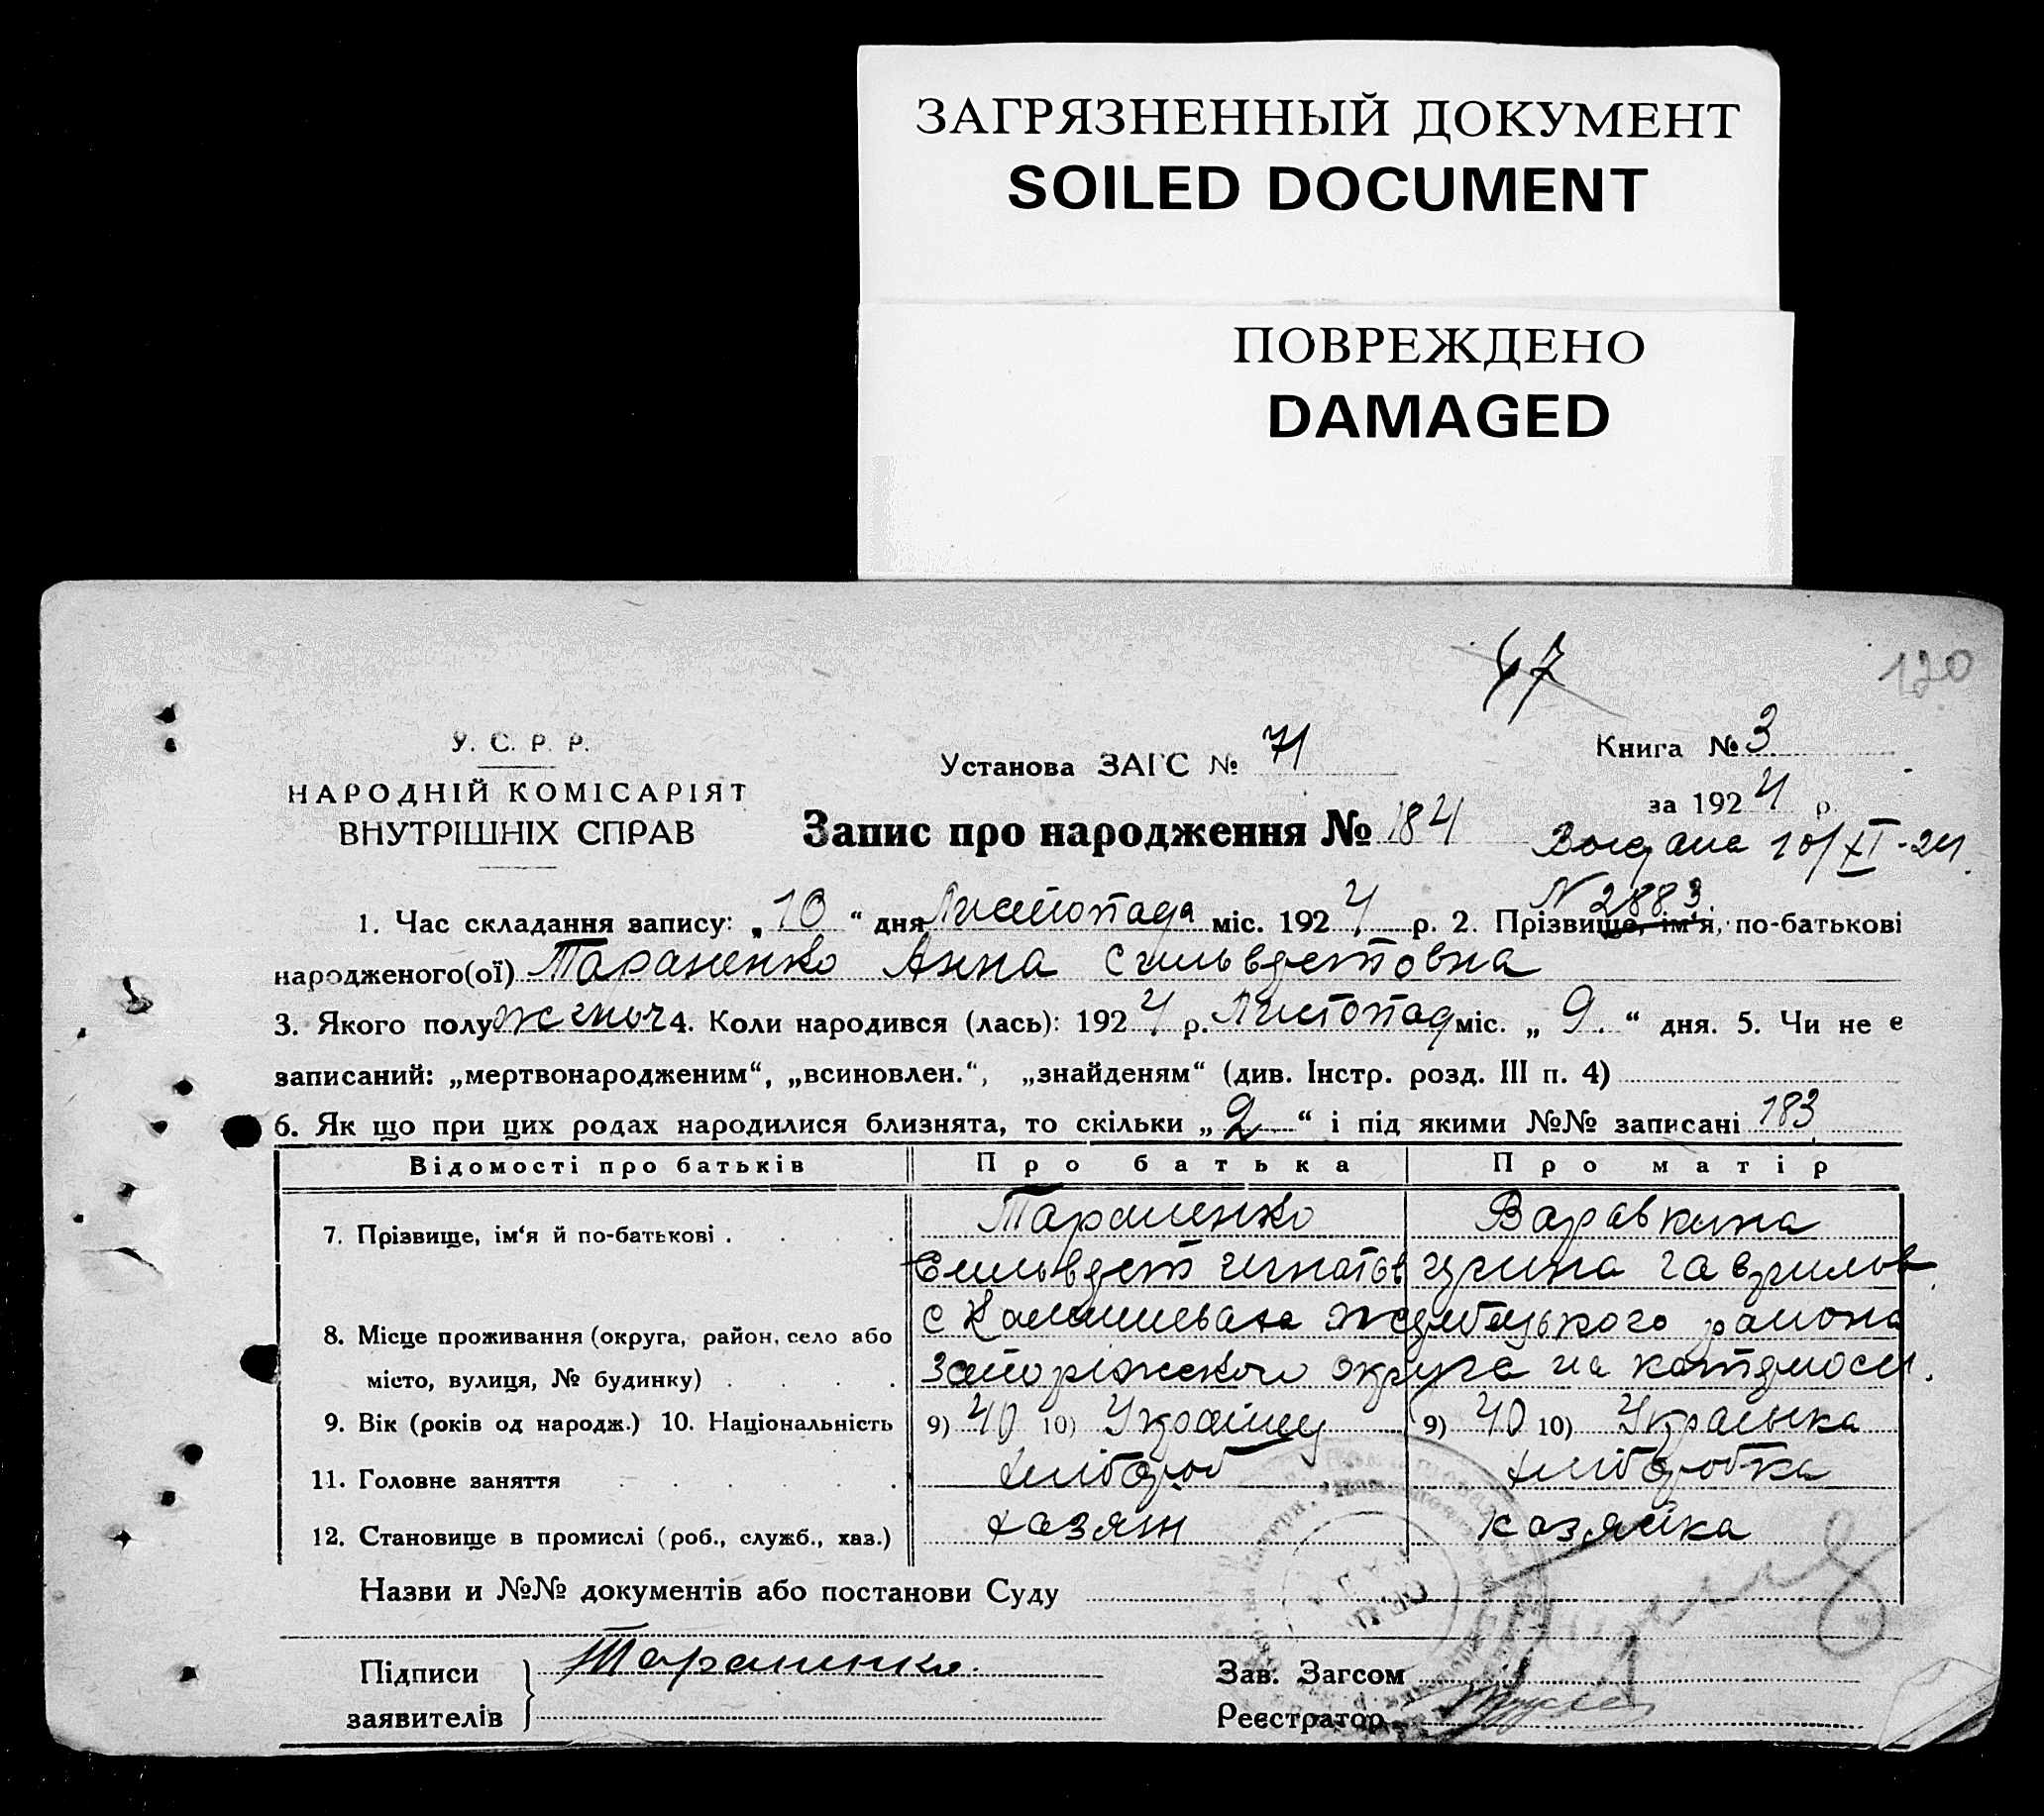 ЗАГРЯЗНЕННЫЙ ДОКУМЕНТ
SOILED DOCUMENT
ПОВРЕЖДЕНО
DAMAGED
47
120
У. С. Р. Р.
НАРОДНІЙ КОМІСАРІЯТ
ВНУТРІШНІХ СПРАВ
Установа ЗАГС № 71
Книга № 3
за 1924 р.
Запис про народження № 184
10/XI-24
N 2883
1. Час складання запису: „10“ дня Листопада міс. 1924 р. 2. Прізвище, ім‘я, по-батькові
народженого(ої) Тараненко Анна Сильвестовна
3. Якого полу женоч 4. Коли народився (лась): 1924 р. Листопад міс. „9.“ дня. 5. Чи не є
записаний: „мертвонародженим“, „всиновлен.“, „знайденям“ (див. Інстр. розд. III п. 4)
6. Як що при цих родах народилися близнята, то скільки „2“ і під якими №№ записані 183
Відомості про батьків Про батька Про матір
7. Прізвище, ім‘я й по-батькові Тараненко Варавкина
Сильвест Игнатов Ирина Гаврилов
8. Місце проживання (округа, район, село або с района
місто, вулиця, № будинку) Запоріжского округа
9. Вік (років од народж.) 10. Національність 9) 40 10) Украінец 9) 40 10) Украінка
11. Головне заняття хлібороб хлібробка
12. Становище в промислі (роб., служб., хаз.) хазяін хазяйка
Назви и №№ документів або постанови Суду
Підписи Тараненко. Зав. Загсом
заявителів Реєстратор